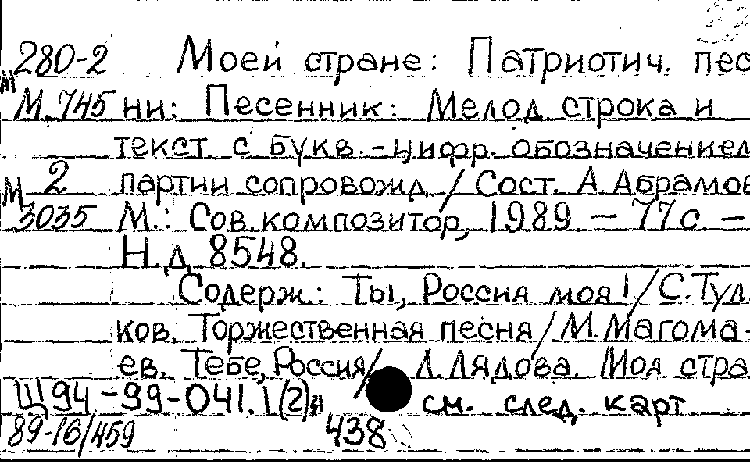 280-2 Моей стране: Патриотич. пес
М.745 ни: Песенник: Мелод. строка и
текст с букв.-цифр. обозначением
М 2 партии сопровожд. / Сост. А. Абрамов
3035 М.: Сов. композитор, 1989 – 77 с. –
Н.д. 8548.
Содерж.: Ты, Россия моя! / С. Тул.
ков. Торжественная песня / М. Магома-
ев. Тебе, Россия / Л. Лядова. Моя стра
Щ94-99-041.1(2) см. след. карт
89-16/459 438